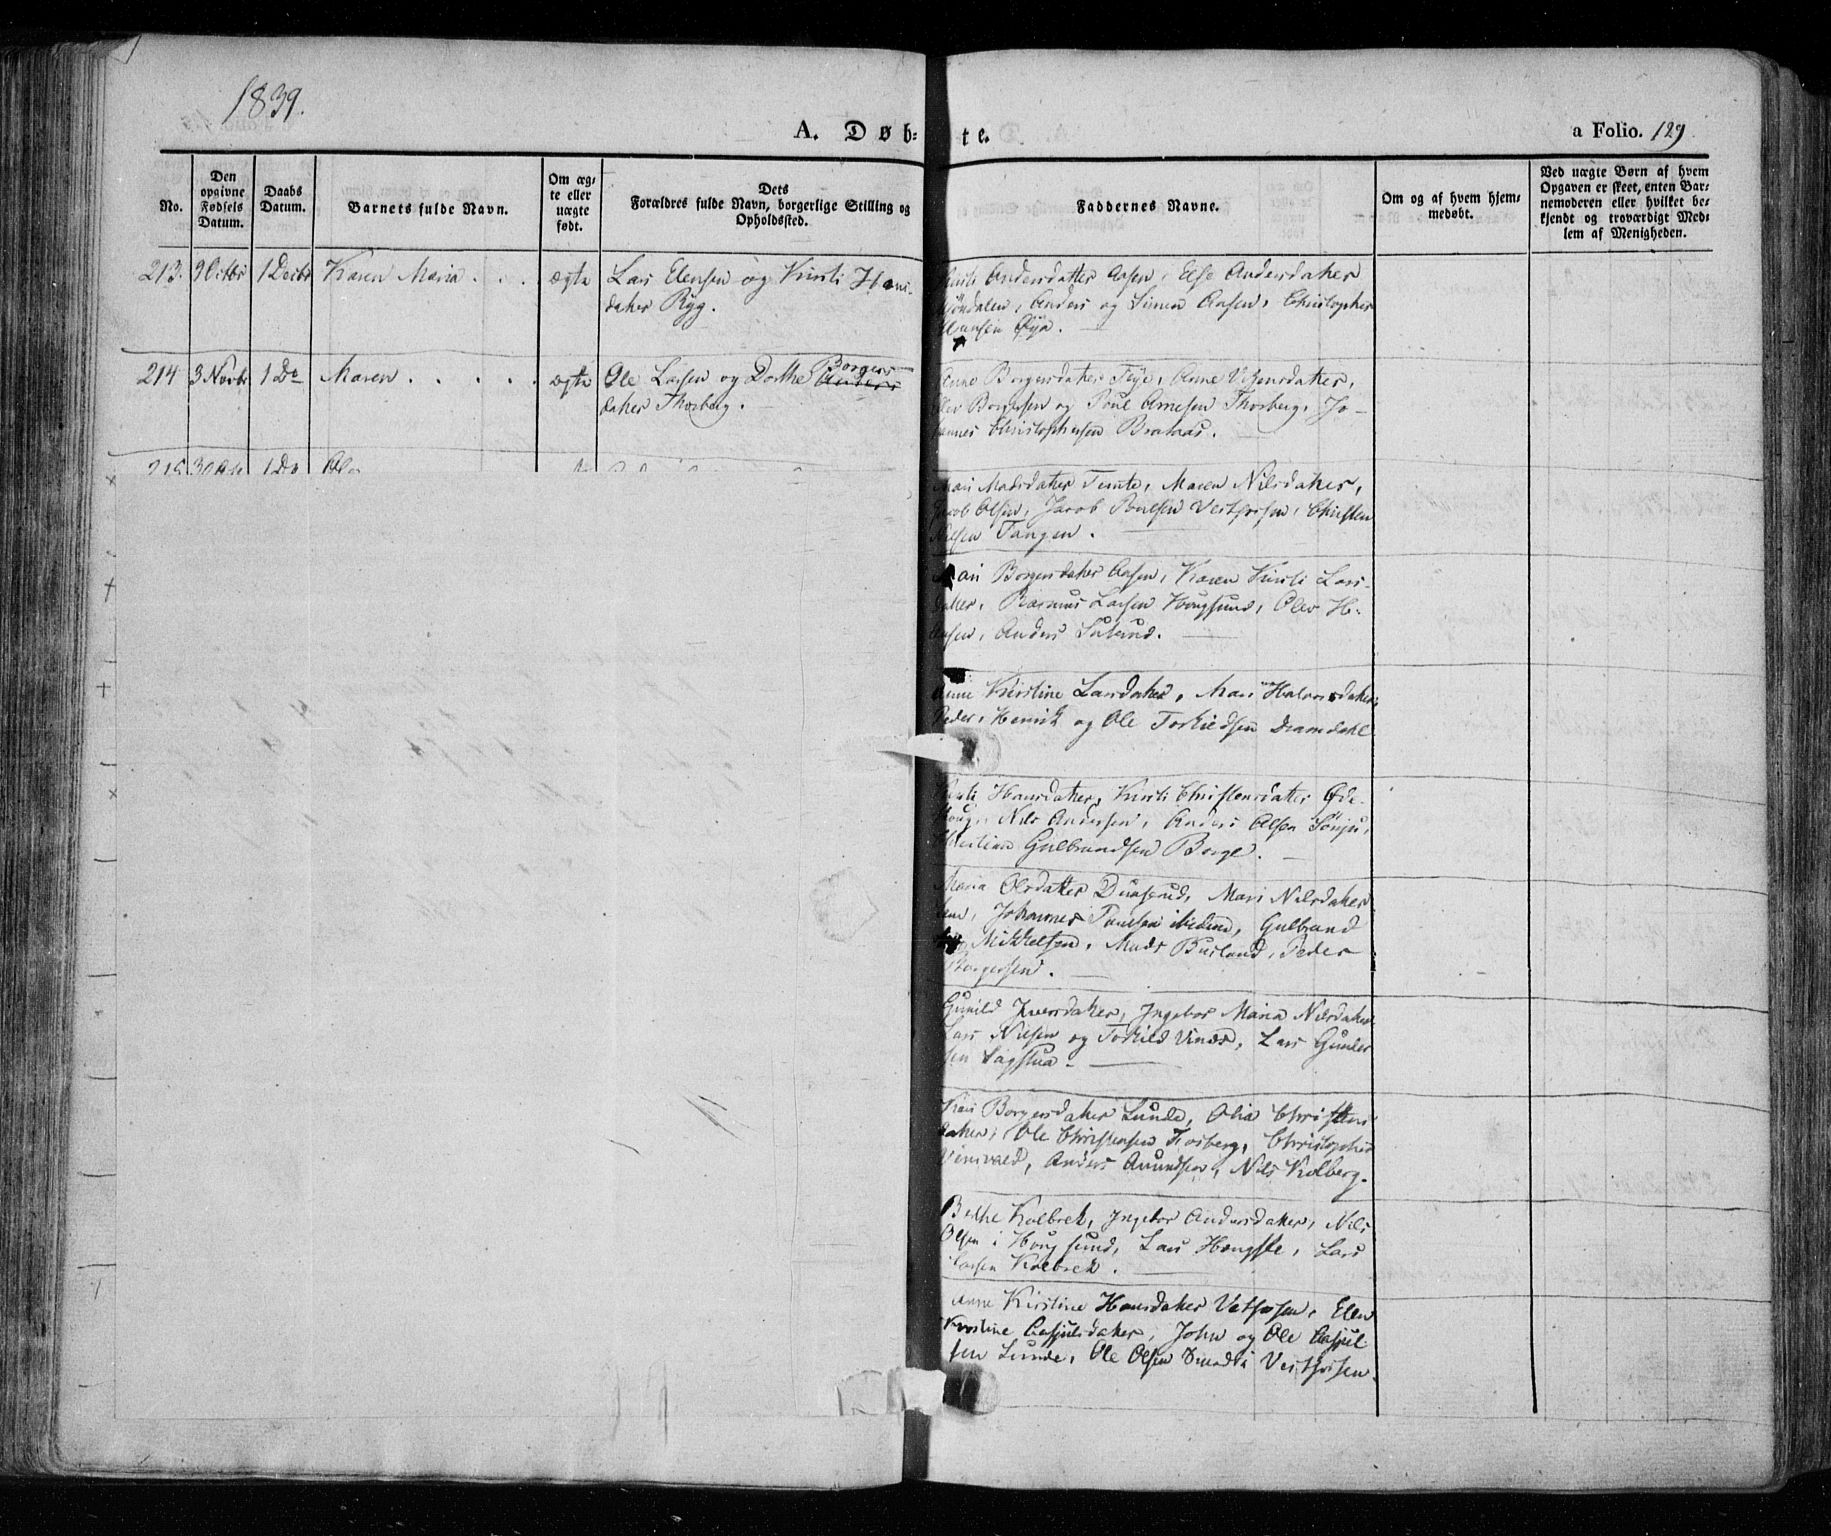 1839.
A. Døb- te.
a Folio. 129
No.
Den opgivne Fødsels Datum.
Daabs Datum.
Barnets fulde Navn.
Om æg-te eller uægte født.
Dets Forældres fulde Navn, borgerlige Stilling og Opholdssted.
Faddernes Navne.
Om og af hvem hjem-medøbt.
Ved uægte Børn af hvem Opgaven er skeet, enten Bar-nemoderen eller hvilket be-kjendt og troværdigt Med-lem af Menigheden.
213. 9 Octbr 1 Decbr Karen Maria . . . ægte Lars Elensen og Kirsti Hans-
datter Ryg.
Kirsti Andersdatter Aasen, Else Andersdatter
Anders og Simen Aasen, Christopher
Hansen Øya.
214 3 Novbr 1 De Maren . . . . . ægte Ole Larsen og Dorthe Borgers
Anders
datter Thorberg.
Anne Borgersdatter Anne
Borgersen og Poul Arnesen Thorberg, Jo-
hannes Christophersen Braknas.
215 30 1 De Ole
Mari Madsdatter Temte, Maren Nilsdatter,
Jacob Olsen, Jacob Poulsen Vestfossen, Christen
Nilsen Tangen.
Mari Borgersdatter Aasen, Karen Kirsti Lars-
datter, Rasmus Larsen Hougsund, Olev H-
ansen, Anders
Anne Kirstine Larsdatter, Mari Halvorsdatter
Peder, Henrik og Ole Torkildsen Dramdahl
Kirsti Hansdatter, Kirsti Christensdatter Øde-
Nils Andersen, Anders Olsen
Christian Gulbrandsen Berge.
Maria Olsdatter Mari Nilsdatter
Johannes Poulsen ibidem, Gulbrand
Mikkelsen, Mads Busland, Peder
Borgersen.
Gunild Iversdatter, Ingebor Maria Nilsdatter
Lars Nilsen og Torkild Vinæs, Lars Gunder
sen Sagstua
Kari Borgersdatter Lunde, Olia Christens
datter, Ole Christensen Torberg, Christopher
Anders Amundsen, Nils Kolberg.
Berthe Kolbrek, Ingebor Andersdatter, Nils
Olsen i Hougsund, Lars Lars
Larsen Kolbrek.
Anne Kirstine Hansdatter Vestfossen, Ellen
Kirstine datter, John og Ole
sen Lunde, Ole Olsen Vestfossen.